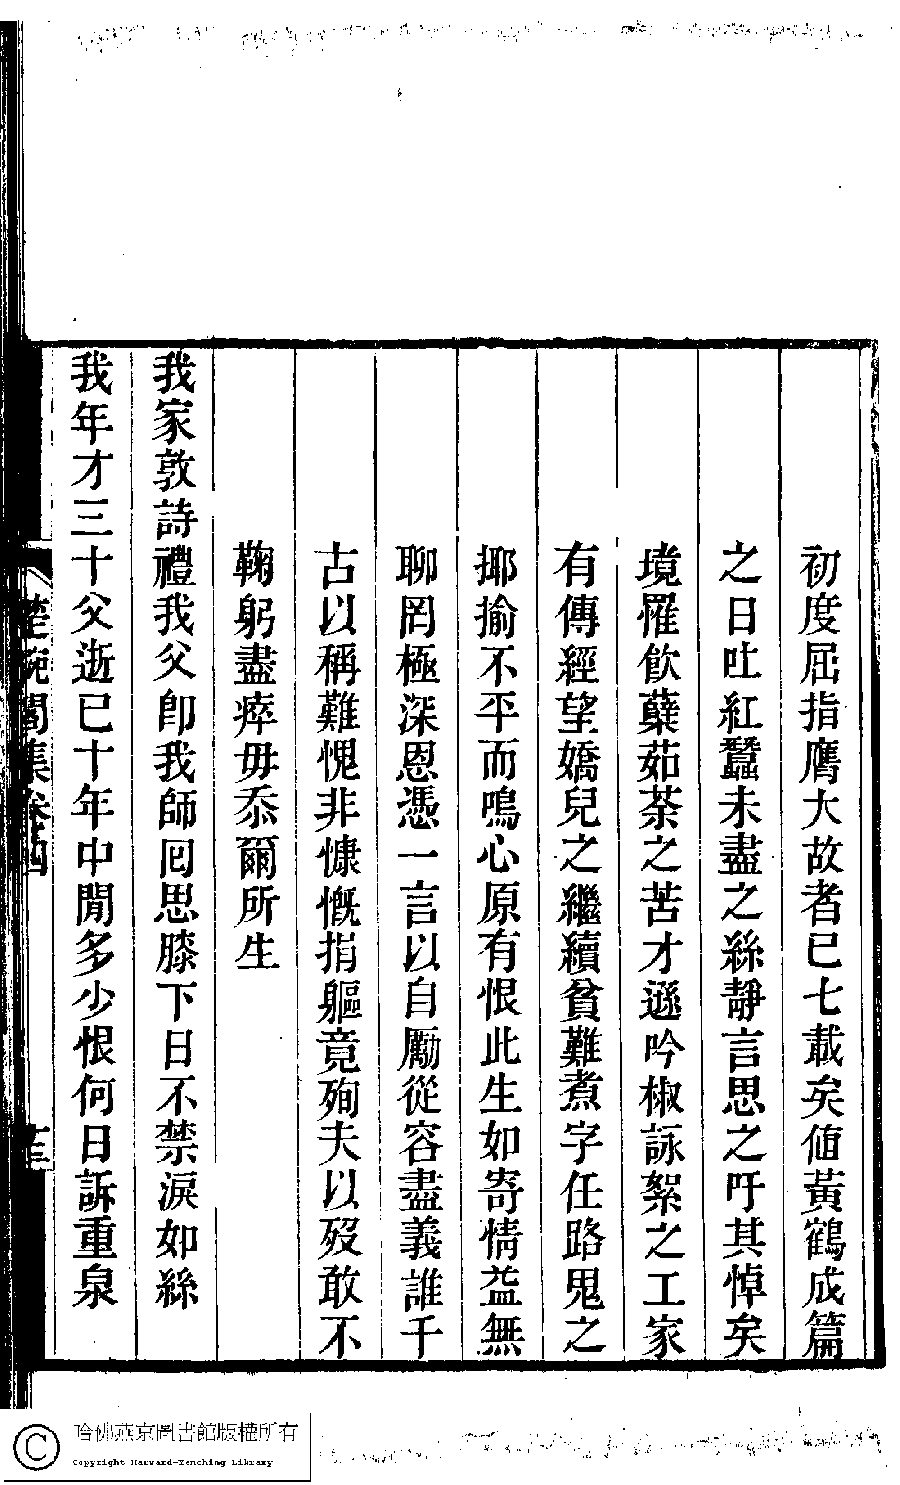 初度屈指膺大故者已七載矣値黃鶴成篇
之日吐紅蠶未盡之絲靜言思之吁其悼矣
境罹飮蘗茹荼之苦才遜吟椒詠絮之工家
有傳經望嬌兒之繼續貧難煮字任路鬼之
揶揄不平而鳴心原有恨此生如寄情益無
聊罔極深恩憑一言以自勵從容盡義誰千
古以稱難愧非慷慨捐軀竟殉夫以歿敢不
鞠躬盡瘁毋忝爾所生
我家敦詩禮我父卽我師囘思膝下日不禁淚如絲
我年才三十父逝已十年中閒多少恨何日訴重泉
閣集卷四
十三
哈佛燕京圖書館版權所有
Copyright Harvard-Yenching Library